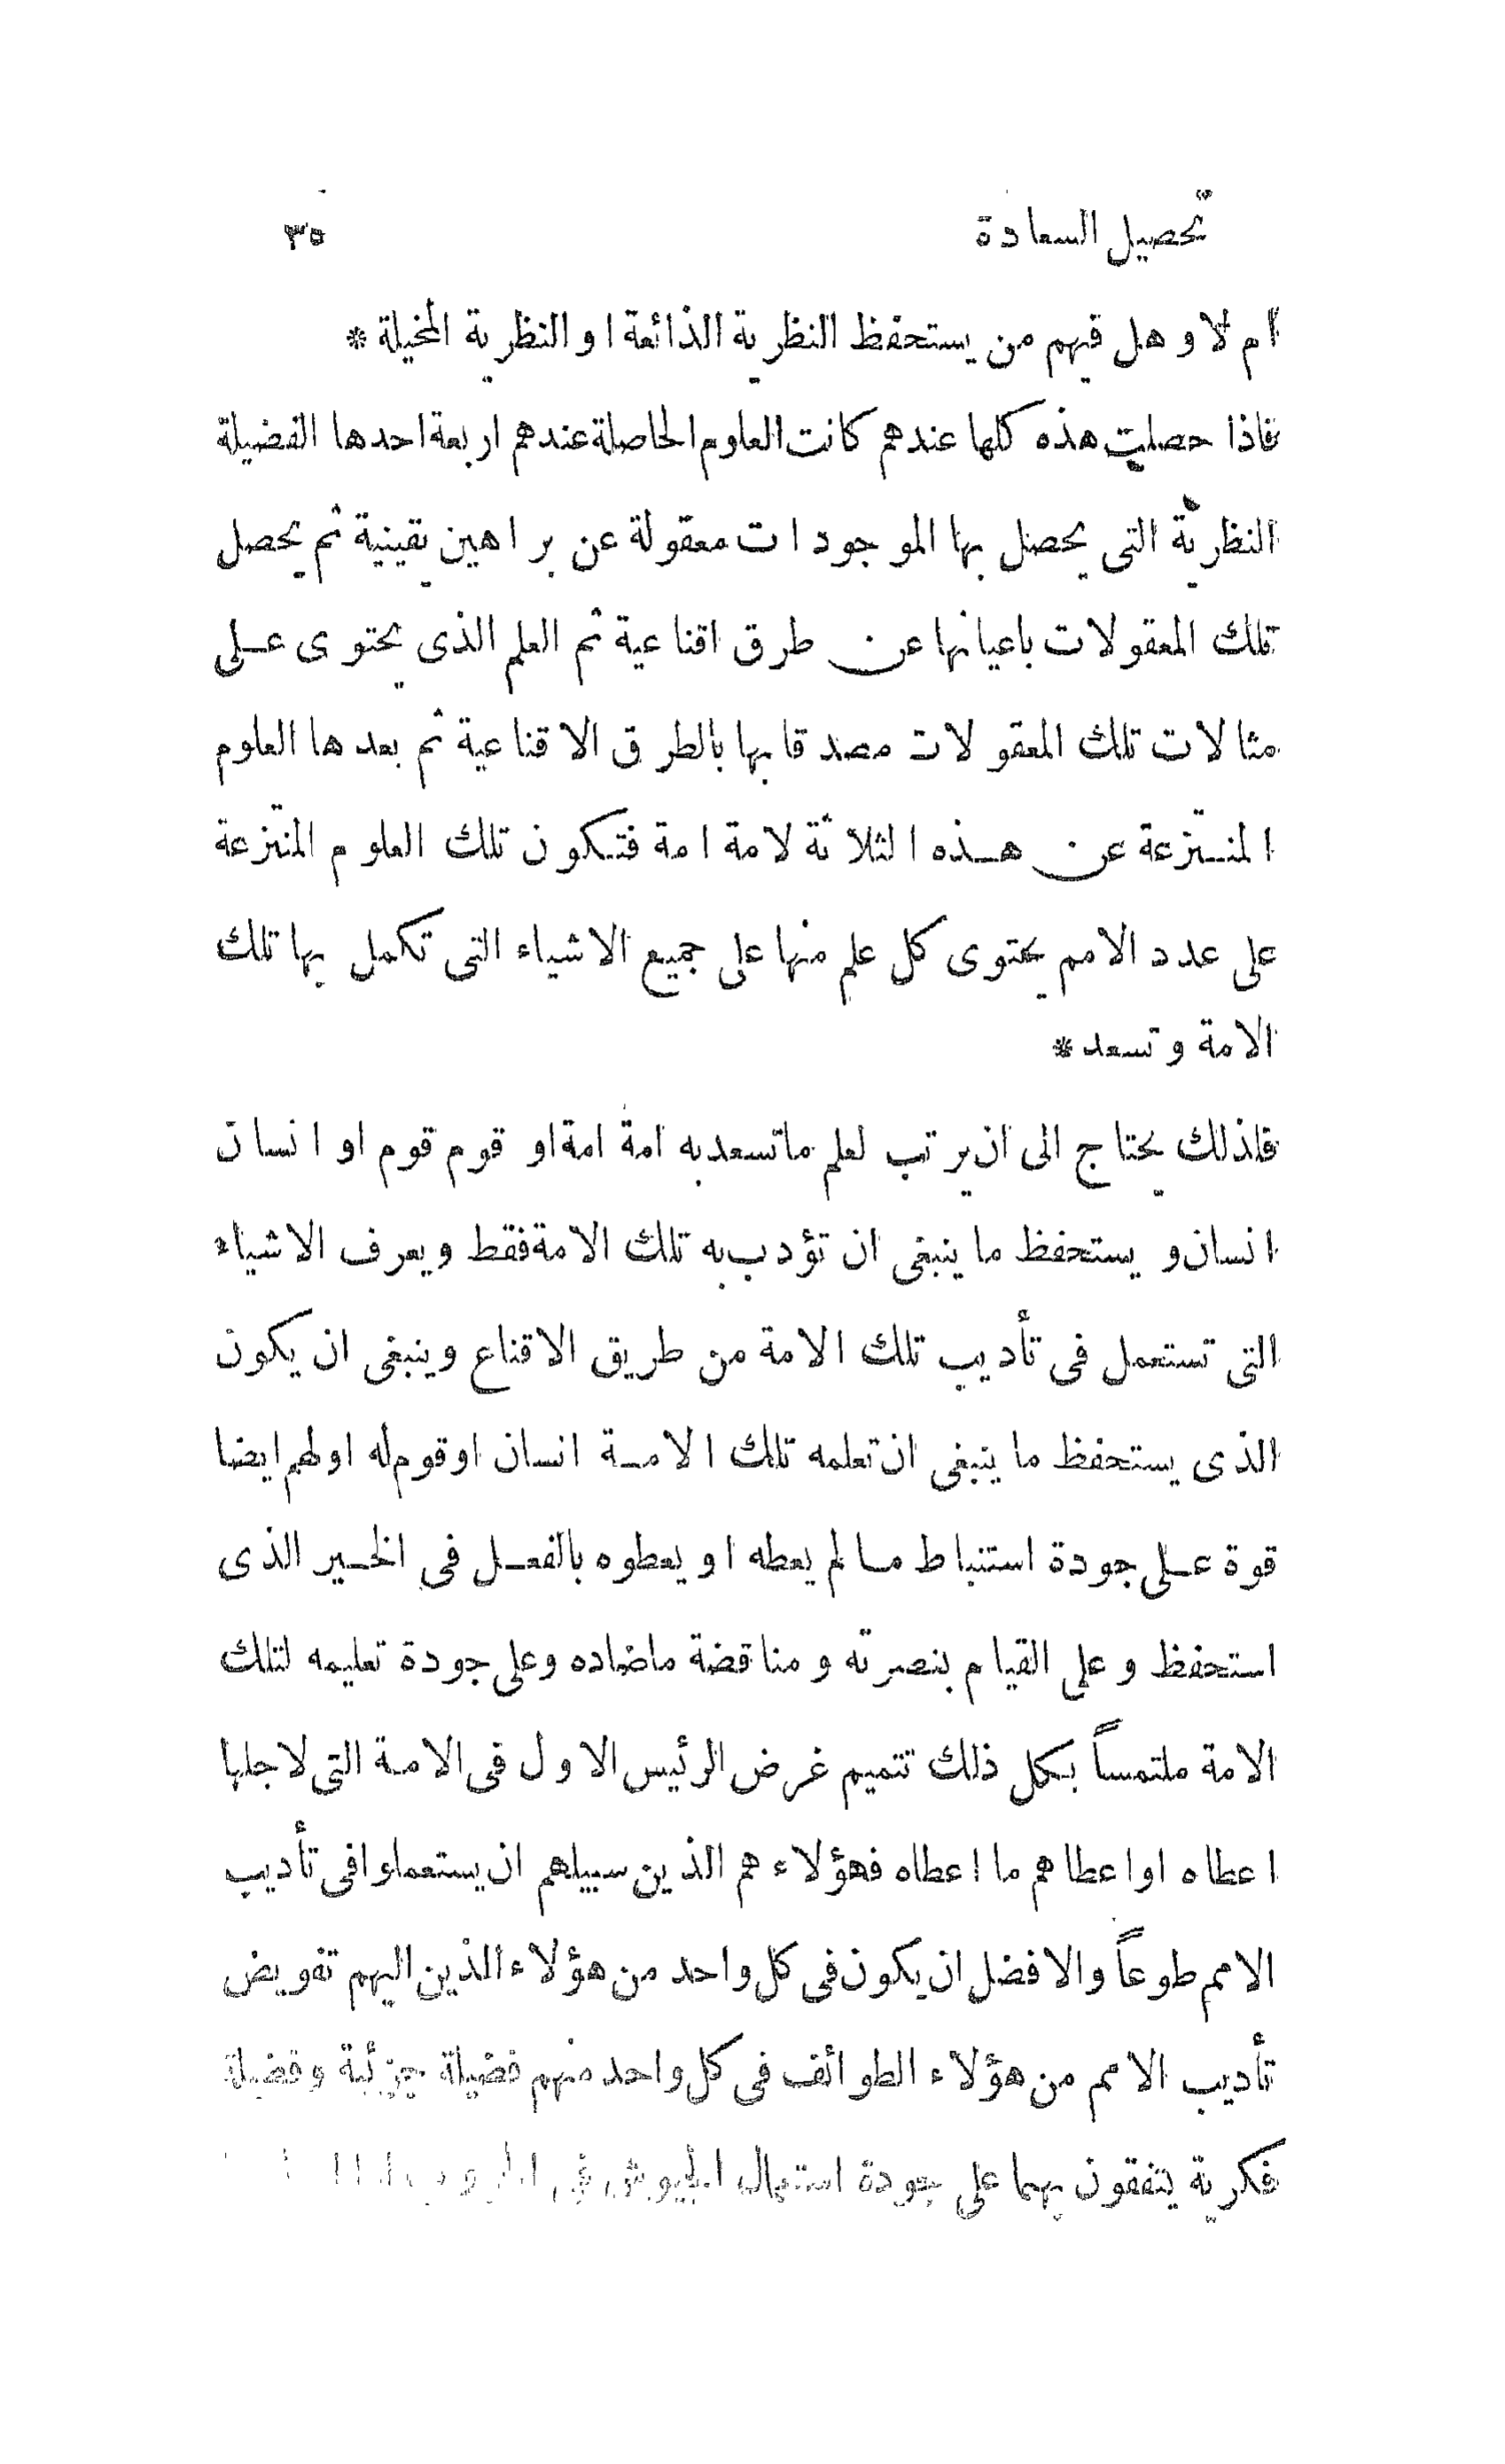 تحصيل السعادة ٣٥
ام لا و هل فيهم من يستحفظ النظرية الذائعة او النظرية المخيلة *
فاذا حصلت هذه كلها عندهم كانت العلوم الحاصلة عندهم اربعة احدها الفضيلة
النظرية التى يحصل بها الموجودات معقولة عن براهين يقينية ثم يحصل
تلك المعقولات باعيانها عن طرق اقناعية ثم العلم الذى يحتوى على
مثالات تلك المعقولات مصدقا بها بالطرق الاقناعية ثم بعدها العلوم
المنتزعة عن هذه الثلاثة لامة امة فتكون تلك العلوم المنتزعة
على عدد الامم يحتوى كل علم منها على جميع الاشياء التى تكمل بها تلك
الامة و تسعد *
فلذلك يحتاج الى ان يرتب لعلم ما تسعد به امة امة او قوم قوم او انسان
انسان و يستحفظ ما ينبغى ان تؤدب به تلك الامة فقط و يعرف الاشياء
التى تستعمل فى تأديب تلك الامة من طريق الاقناع وينبغى ان يكون
الذى يستحفظ ما ينبغى ان تعلمه تلك الامة انسان او قوم له او لهم ايضا
قوة على جودة استنباط ما لم يعطه او يعطوه بالفعل فى الخير الذى
استحفظ و على القيام بنصرته و مناقضة ماضاده وعلى جودة تعليمه لتلك
الامة ملتمساً بكل ذلك تتميم غرض الرئيس الاول فى الامة التى لاجلها
اعطاه او اعطاهم ما اعطاه فهؤلاء هم الذين سبيلهم ان يستعملوا فى تأديب
الامم طوعاً والافضل ان يكون فى كل واحد من هؤلاء الذين اليهم تفويض
تأديب الامم من هؤلاء الطوائف فى كل واحد منهم فضيلة جزئية وفضيلة
فكرية يتفقون بهما على جودة استعمال الجيوش فى الحروب